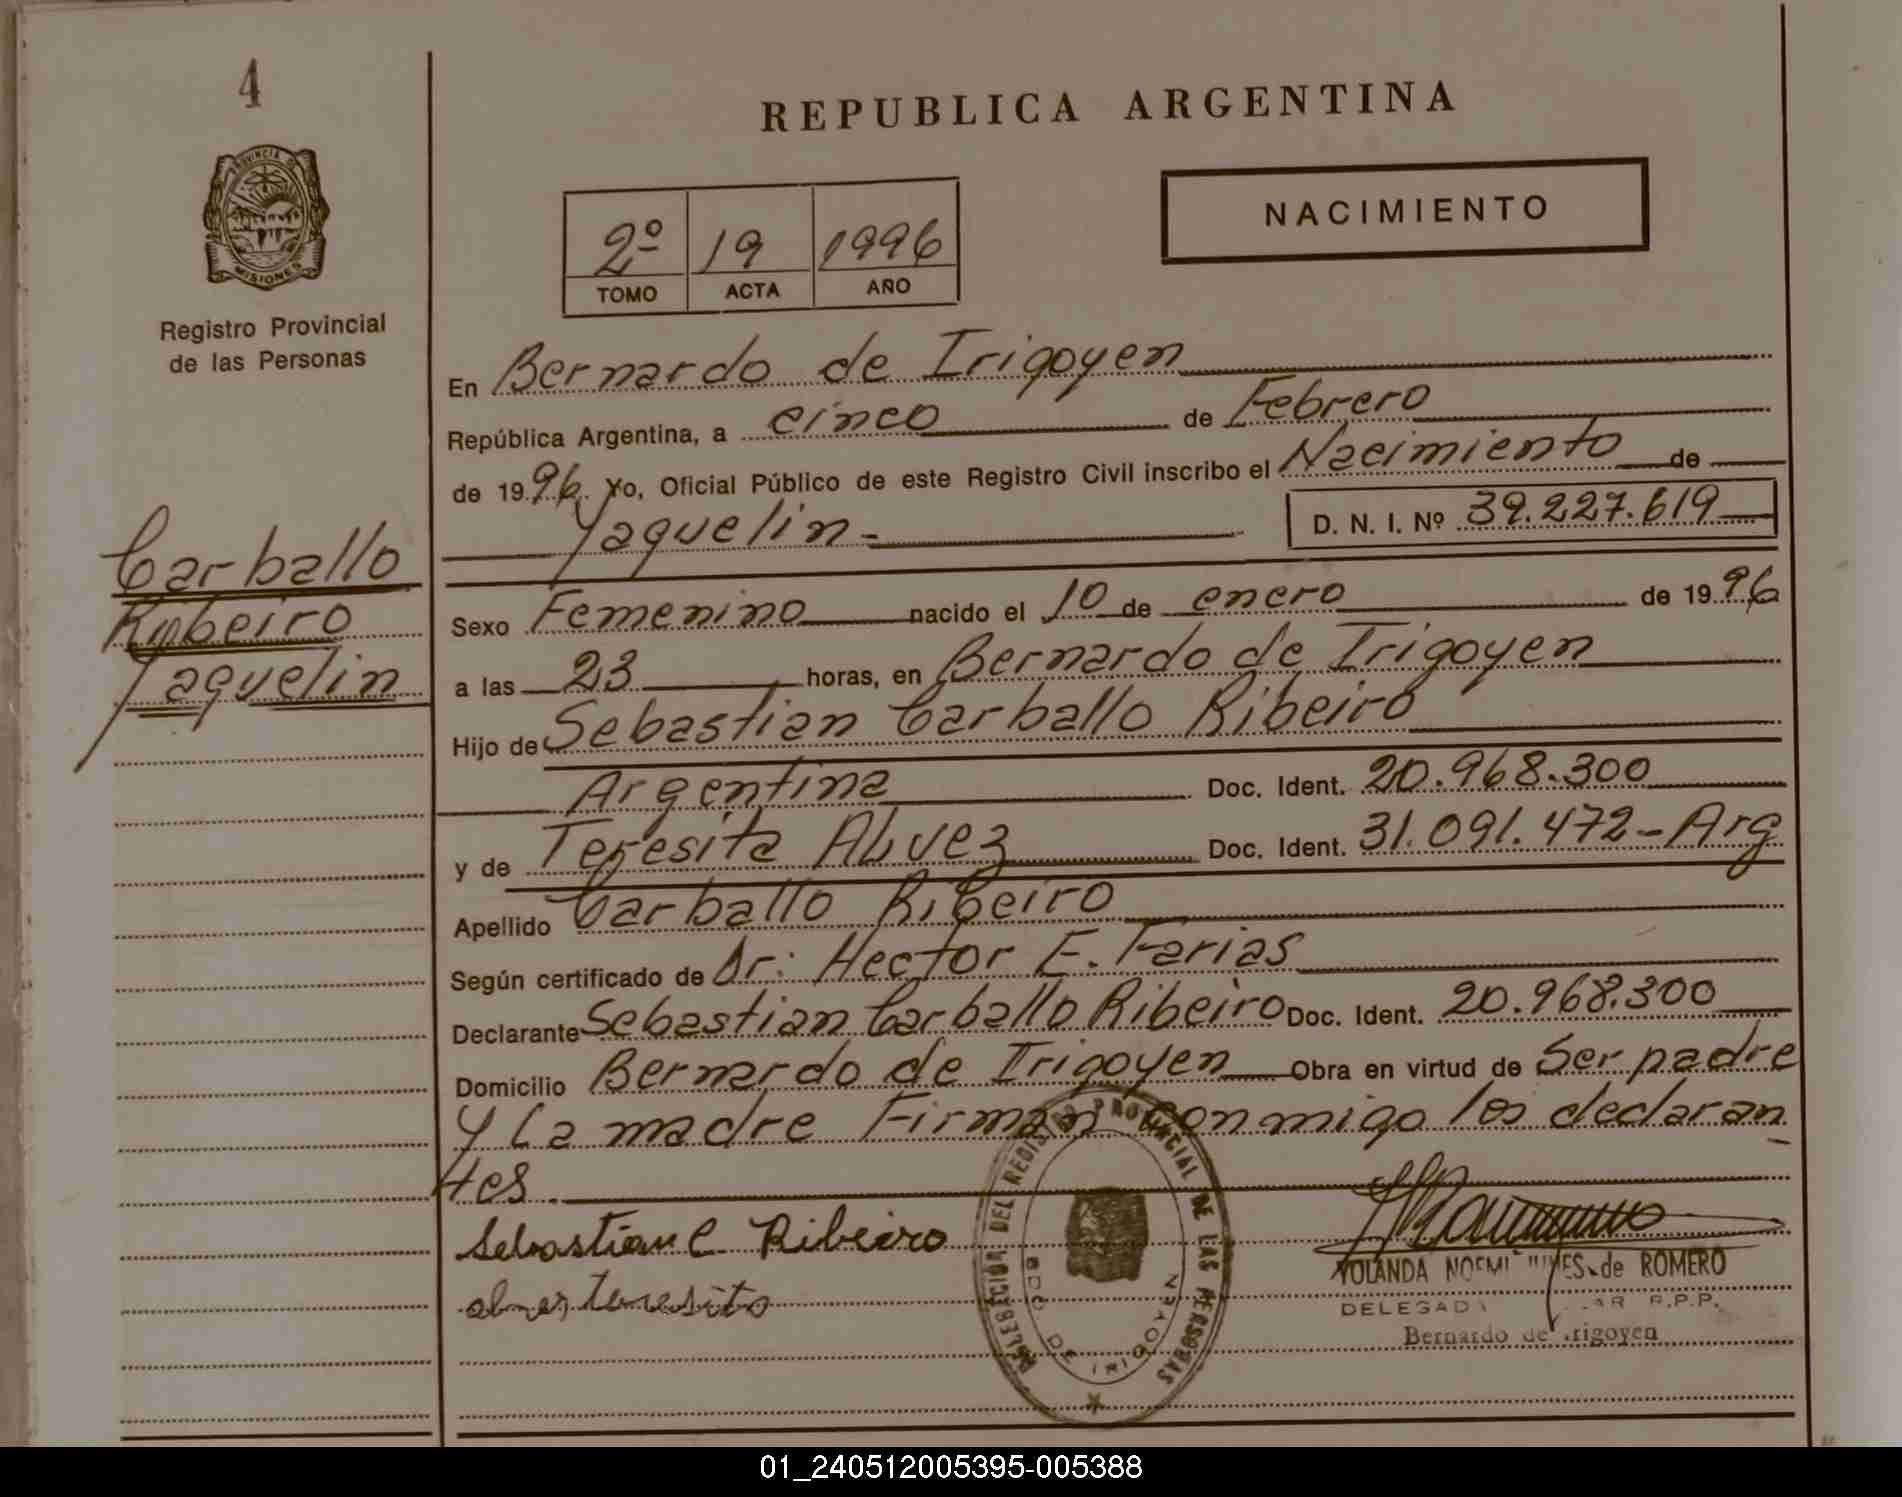 4
REPUBLICA ARGENTINA
PROVINCIA DE
MISIONES
Registro Provincial
de las Personas
2º 19 1996
TOMO ACTA AÑO
NACIMIENTO
En Bernardo de Irigoyen
República Argentina, a cinco de Febrero
de 1996. Yo, Oficial Público de este Registro Civil inscribo el Nacimiento de
Yaquelin D. N. I. Nº 39.227.619
Carballo
Ribeiro
Yaquelin
Sexo Femenino nacido el 10 de enero de 1996
a las 23 horas, en Bernardo de Irigoyen
Hijo de Sebastian Carballo Ribeiro
Argentina Doc. Ident. 20.968.300
y de Teresita Alvez Doc. Ident. 31.091.472-Arg
Apellido Carballo Ribeiro
Según certificado de Dr: Hector E. Farias
Declarante Sebastian Carballo Ribeiro Doc. Ident. 20.968.300
Domicilio Bernardo de Irigoyen Obra en virtud de Ser padre
y La madre Firman conmigo los declaran
tes
Sebastian C Ribeiro
teresita
DEL REGISTRO PROVINCIAL DE LAS PERSONAS
BDO. DE IRIGOYEN
YOLANDA NOEMI de ROMERO
R.P.P.
Bernardo de Irigoyen
01_240512005395-005388